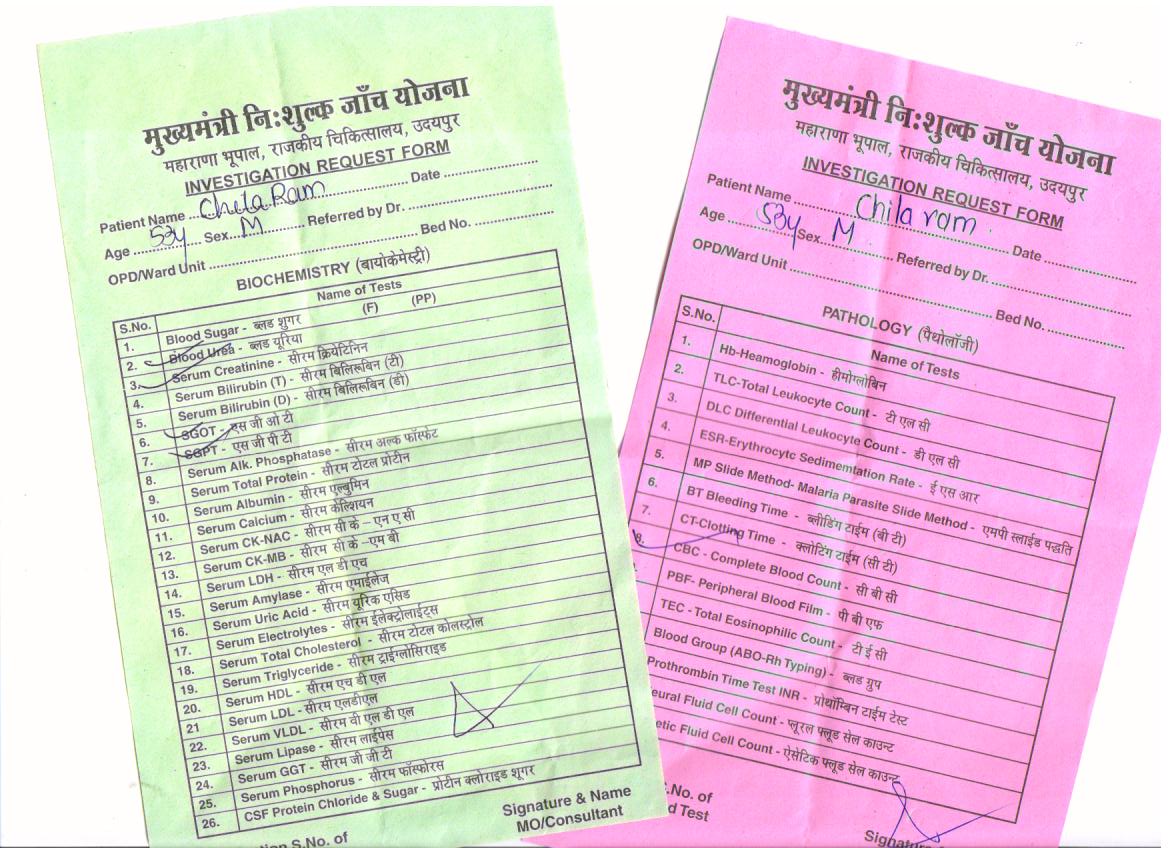 मुख्यमंत्री नि:शुल्क जाँच योजना
महाराणा भूपाल, राजकीय चिकित्सालय, उदयपुर
INVESTIGATION REQUEST FORM
Patient Name Chila Ram Date
Age 52y Sex M Referred by Dr.
OPD/Ward Unit Bed No.
BIOCHEMISTRY (बायोकेमेस्ट्री)
S.No. Name of Tests
1. Blood Sugar - ब्लड शुगर (F) (PP)
2. Blood Urea - ब्लड यूरिया
3. Serum Creatinine - सीरम क्रियेटिनिन
4. Serum Bilirubin (T) - सीरम बिलिरूबिन (टी)
5. Serum Bilirubin (D) - सीरम बिलिरूबिन (डी)
6. SGOT - एस जी ओ टी
7. SGPT - एस जी पी टी
8. Serum Alk. Phosphatase - सीरम अल्क फॉस्फेट
9. Serum Total Protein - सीरम टोटल प्रोटीन
10. Serum Albumin - सीरम एल्बुमिन
11. Serum Calcium - सीरम केल्शियन
12. Serum CK-NAC - सीरम सी के – एन ए सी
13. Serum CK-MB - सीरम सी के –एम बी
14. Serum LDH - सीरम एल डी एच
15. Serum Amylase - सीरम एमाईलेज
16. Serum Uric Acid - सीरम यूरिक एसिड
17. Serum Electrolytes - सीरम ईलेक्ट्रोलाईट्स
18. Serum Total Cholesterol - सीरम टोटल कोलस्ट्रोल
19. Serum Triglyceride - सीरम ट्राईग्लोसिराइड
20. Serum HDL - सीरम एच डी एल
21 Serum LDL - सीरम एलडीएल
22. Serum VLDL - सीरम वी एल डी एल
23. Serum Lipase - सीरम लाईपेस
24. Serum GGT - सीरम जी जी टी
25. Serum Phosphorus - सीरम फॉस्फोरस
26. CSF Protein Chloride & Sugar - प्रोटीन क्लोराइड शूगर
Signature & Name
MO/Consultant
S.No. of
मुख्यमंत्री नि:शुल्क जाँच योजना
महाराणा भूपाल, राजकीय चिकित्सालय, उदयपुर
INVESTIGATION REQUEST FORM
Patient Name Chila ram Date
Age 52y Sex M Referred by Dr.
OPD/Ward Unit Bed No.
PATHOLOGY (पैथोलॉजी)
S.No. Name of Tests
1. Hb-Heamoglobin - हीमोग्लोबिन
2. TLC-Total Leukocyte Count - टी एल सी
3. DLC Differential Leukocyte Count - डी एल सी
4. ESR-Erythrocytc Sedimemtation Rate - ई एस आर
5. MP Slide Method- Malaria Parasite Slide Method - एमपी स्लाईड पद्धति
6. BT Bleeding Time - ब्लीडिंग टाईम (बी टी)
7. CT-Clotting Time - क्लोटिंग टाईम (सी टी)
8. CBC - Complete Blood Count - सी बी सी
PBF- Peripheral Blood Film - पी बी एफ
TEC - Total Eosinophilic Count - टी ई सी
Blood Group (ABO-Rh Typing) - ब्लड ग्रुप
Prothrombin Time Test INR - प्रोथॉम्बिन टाईम टेस्ट
eural Fluid Cell Count - प्लूरल फ्लूड सेल काउन्ट
etic Fluid Cell Count - ऐसेटिक फ्लूड सेल काउन्ट
S.No. of
d Test